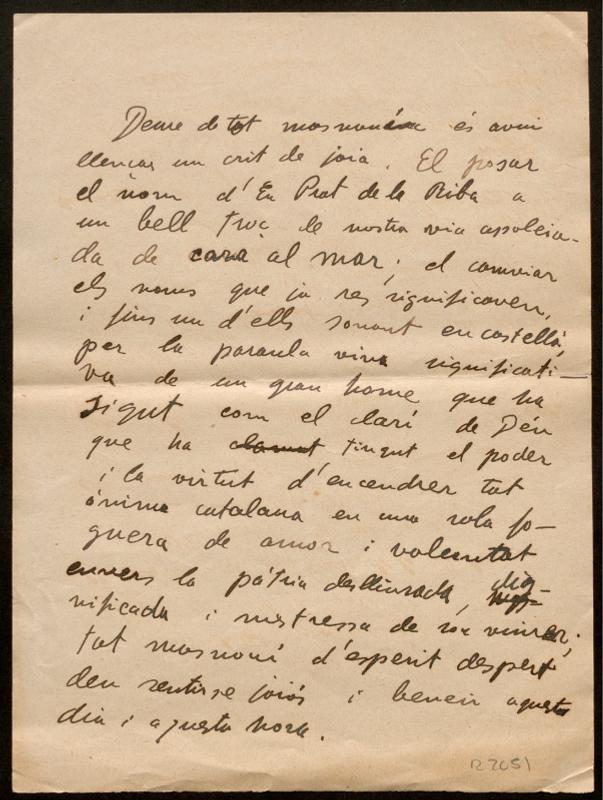 Deure de tot masnoní és avui
llençar un crit de joia. El posar
el nom d'En Prat de la Riba a
un bell troç de nostra via assoleia-
da de cara al mar; el camviar
els noms que ja res significaven,
i fins un d'ells sonant en castellà,
per la paraula viva significati-
va de un gran home que ha
sigut com el clarí de Déu
que ha clamat tingut el poder
i la virtut d'encendrer tot
ànima catalana en una sola fo-
guera de amor i voluntat
envers la pàtria deslliurada, dig-
nificada i mestressa de son vinrer;
tot masnoní d'esperit despert
deu sentirse joiós i beneir aquest
dia i aquesta hora.
R 7051